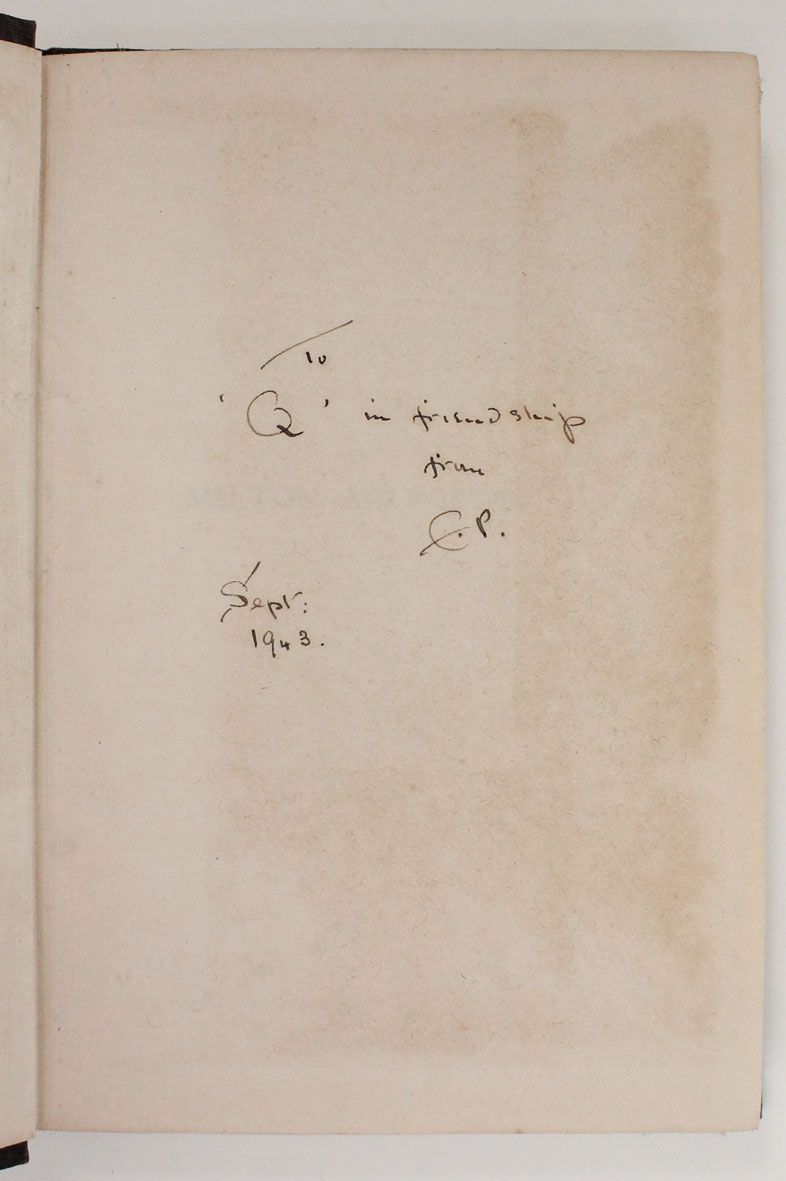 To
'Q' in friendship
from
C.P.
Sept:
1943.